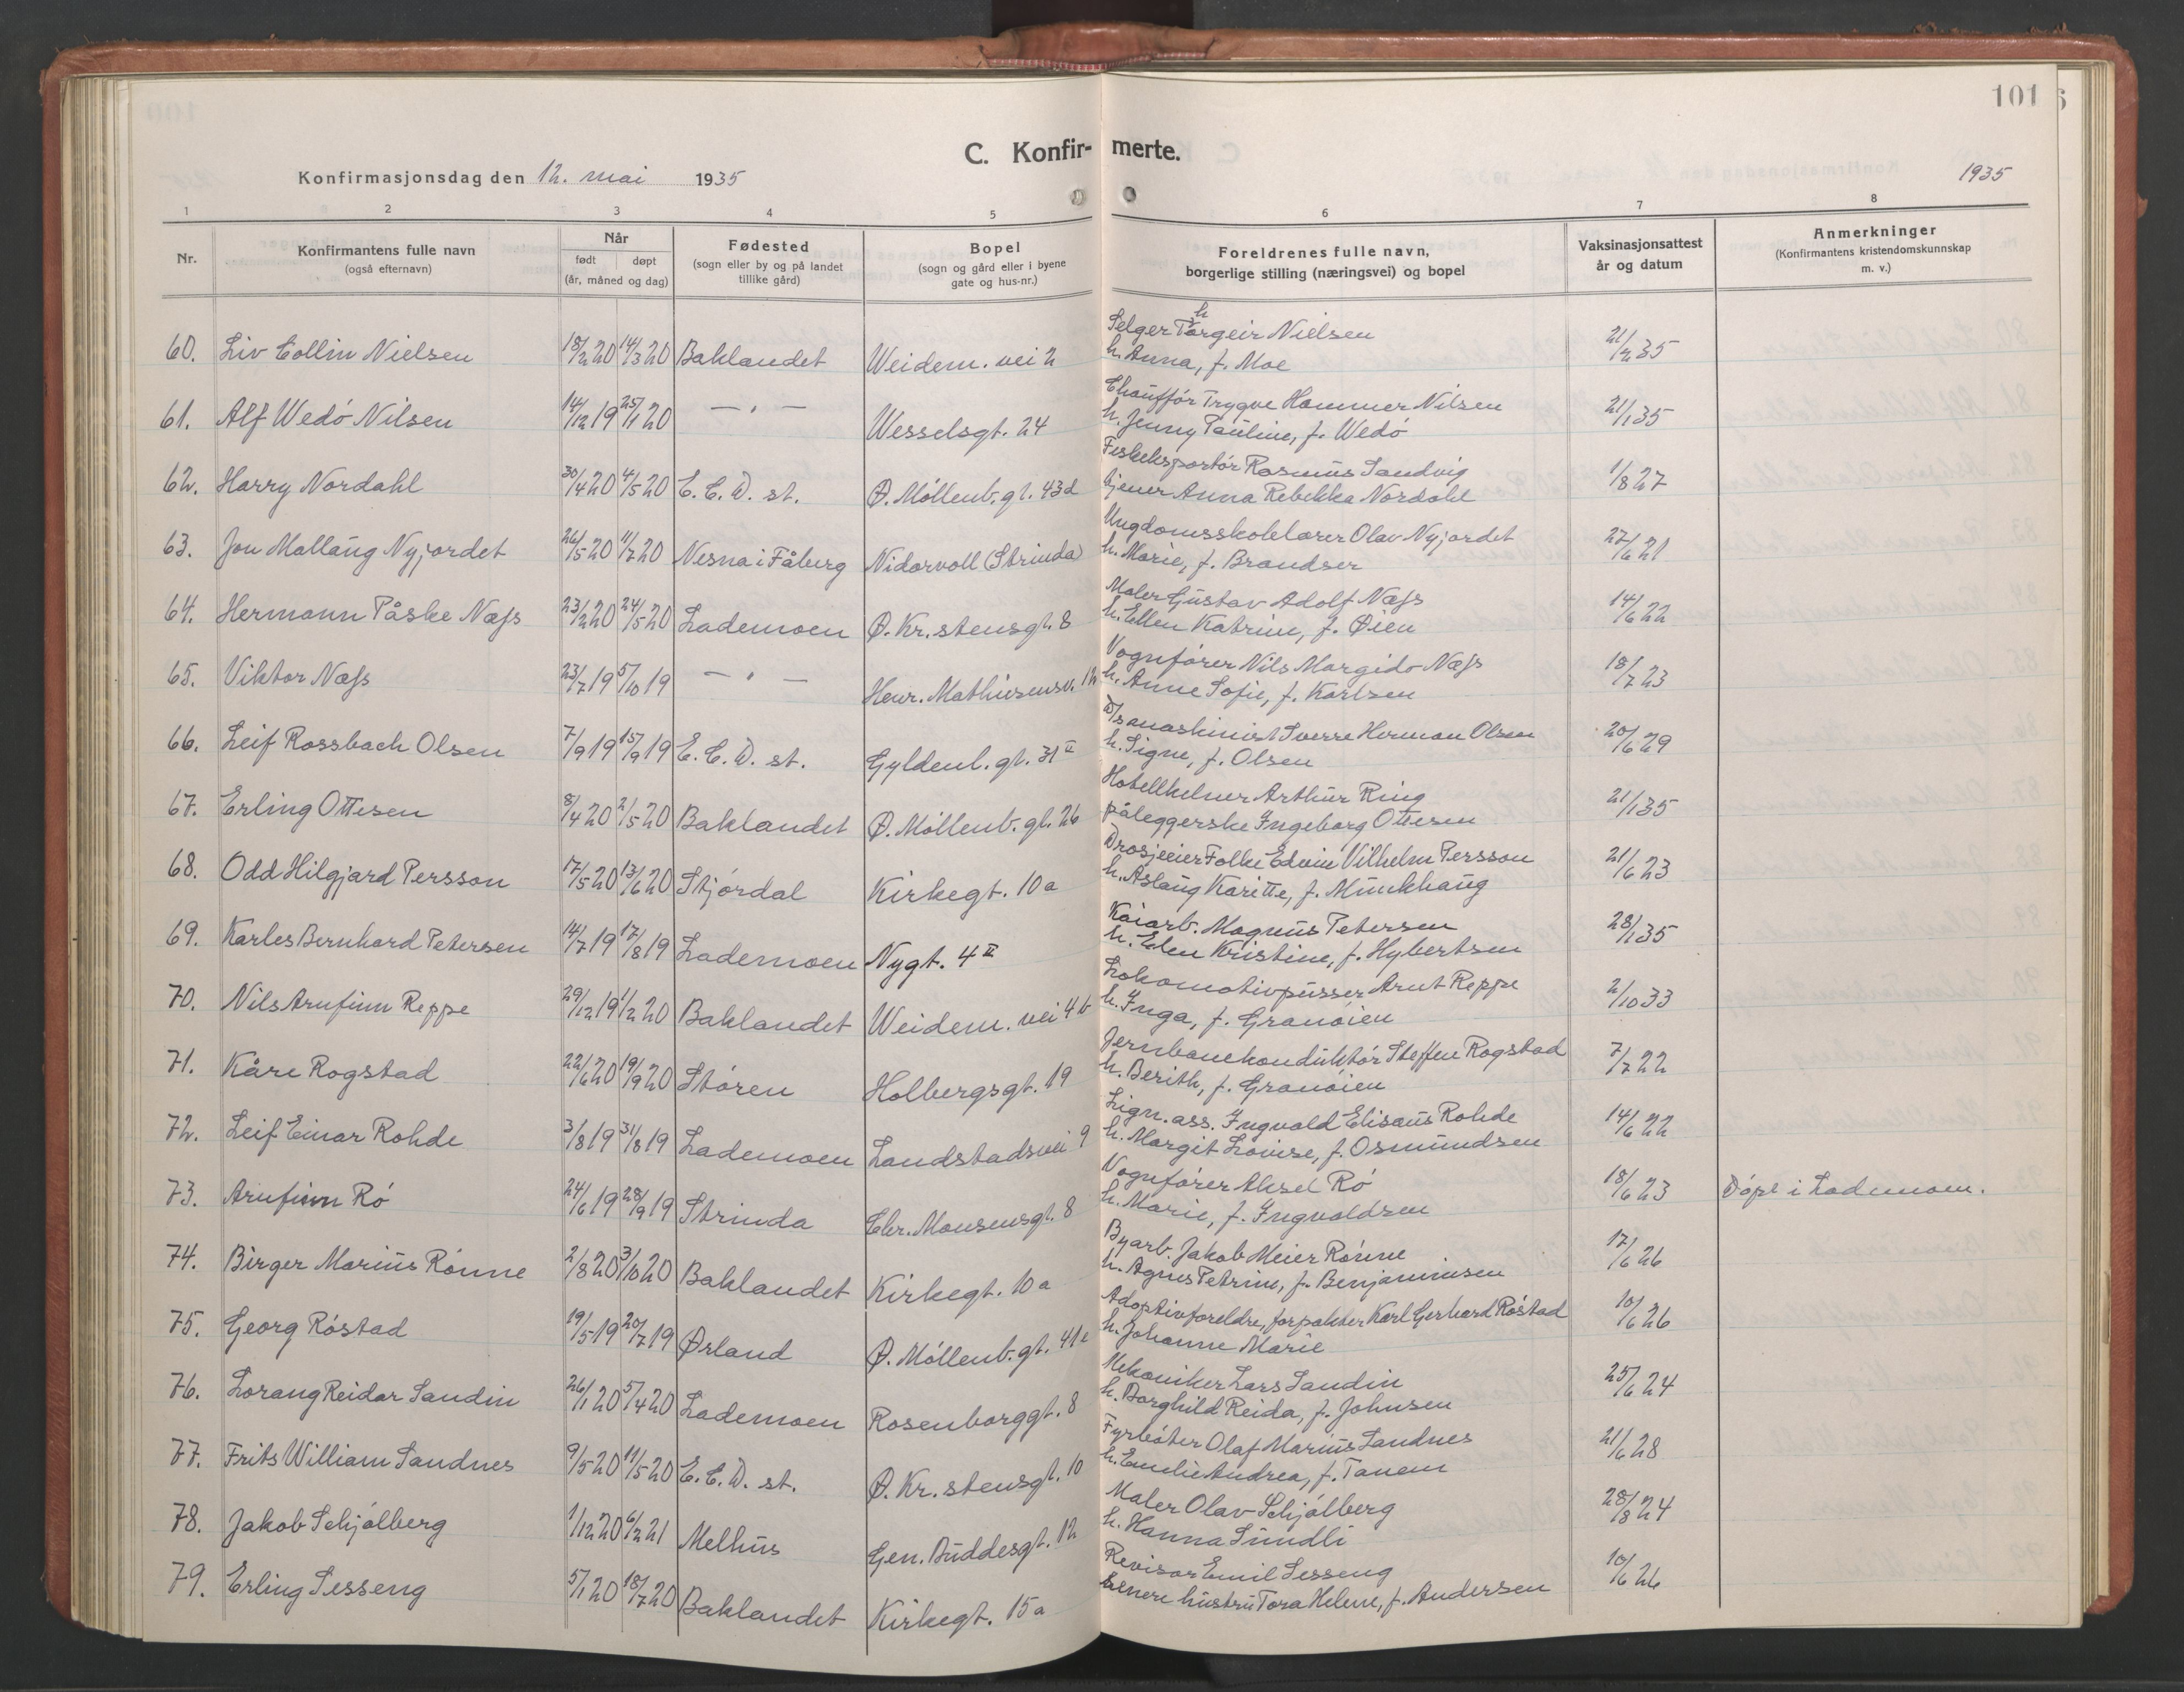 101
C. Konfir- merte.
Konfirmasjonsdag den 12. mai 1935
1935
1 2 3 4 5 6 7 8
Nr. Konfirmantens fulle navn (også efternavn) Når født døpt (år, måned og dag) Fødested (sogn eller by og på landet tillike gård) Bopel (sogn og gård eller i byene gate og hus-nr.) Foreldrenes fulle navn, borgerlige stilling (næringsvei) og bopel Vaksinasjonsattest år og datum Anmerkninger (Konfirmantens kristendomskunnskap m. v.)
60. Liv Collin Nielsen 18/2 20 14/3 20 Baklandet Weidem. vei 2 Selger Torgeir Nielsen 21/2 35
h. Anna, f. Moe
61. Alf Wedó Nilsen 14/12 19 25/1 20 — " — Wesselsgt. 24 Chauffór Trygve Hammer Nilsen 21/1 35
h. Jenny Pauline, f. Wedó
62. Harry Nordahl 30/4 20 4/5 20 E. C. D. st. Ø. Móllenb. gt. 43d Fiskeeksportór Rasmus Sandvig 1/8 27
tjener Anna Rebekka Nordahl
63. Jon Mallaug Nyjordet 26/5 20 11/7 20 Nesna i Fåberg Nidarvoll (Strinda) Ungdomsskolelærer Olav Nyjordet 27/6 21
h. Marie, f. Brandser
64. Hermann Påske Næss 23/2 20 24/5 20 Lademoen Ø. Kr. stensgt. 8 Maler Gustav Adolf Næss 14/6 22
h. Ellen Katrine, f. Øien
65. Viktor Næss 23/7 19 5/10 19 — " — Henr. Mathiesensv. 12 Vognfórer Nils Margido Næss 18/7 23
h. Anne Sofie, f. Karlsen
66. Leif Rossbach Olsen 7/9 19 15/9 19 E. C. D. st. Gyldenl. gt. 31 II D/s maskinist Sverre Herman Olsen 20/6 29
h. Signe, f. Olsen
67. Erling Ottesen 8/4 20 2/5 20 Baklandet Ø. Móllenb. gt. 26 Hotellkelner Arthur Ring 21/1 35
påleggerske Ingeborg Ottesen
68. Odd Hilgjard Persson 17/5 20 13/6 20 Stjórdal Kirkegt. 10a Drosjeeier Folke Edvin Vilhelm Persson 21/6 23
h. Aslaug Karitte, f. Munkhaug
69. Karles Bernhard Petersen 14/7 19 17/8 19 Lademoen Nygt. 4 II Kaiarb. Magnus Petersen 28/1 35
h. Elen Kristine, f. Hybertsen
70. Nils Arnfinn Reppe 29/12 19 1/2 20 Baklandet Weidem. vei 4b Lokomotivpusser Arnt Reppe 2/10 33
h. Inga, f. Granóien
71. Kåre Rogstad 22/6 20 19/9 20 Stóren Holbergsgt. 19 Jernbanekonduktór Steffen Rogstad 7/7 22
h. Berith, f. Granóien
72. Leif Einar Rohde 3/8 19 31/8 19 Lademoen Landstadsvei 9 Lign. ass. Ingvald Elisæus Rohde 14/6 22
h. Margit Lovise, f. Osmundsen
73. Arnfinn Ró 24/6 19 28/9 19 Strinda Chr. Monsensgt. 8 Vognfórer Aksel Ró 18/6 23 Dópt i Lademoen.
h. Marie, f. Ingvaldsen
74. Birger Marius Rónne 2/8 20 3/10 20 Baklandet Kirkegt. 10a Byarb. Jakob Meier Rónne 17/6 26
h. Agnes Petrine, f. Benjaminsen
75. Georg Róstad 19/5 19 20/7 19 Ørland Ø. Móllenb. gt. 41c Adoptivforeldre, forpakter Karl Gerhard Róstad 10/6 26
h. Johanne Marie
76. Lorang Reidar Sandin 26/1 20 5/4 20 Lademoen Rosenborggt. 8 Mekaniker Lars Sandin 25/6 24
h. Borghild Reida, f. Johnsen
77. Frits William Sandnes 9/5 20 11/5 20 E. C. D. st. Ø. Kr. stensgt. 10 Fyrbóter Olaf Marius Sandnes 21/6 28
h. Emelie Andrea, f. Tanem
78. Jakob Schjólberg 1/12 20 6/2 21 Melhus Gen. Buddesgt. 12 Maler Olav Schjólberg 28/8 24
h. Hanna Sundli
79. Erling Sesseng 5/1 20 18/7 20 Baklandet Kirkegt. 15a Revisor Emil Sesseng 10/6 26
senere hustru Tora Helene, f. Andersen